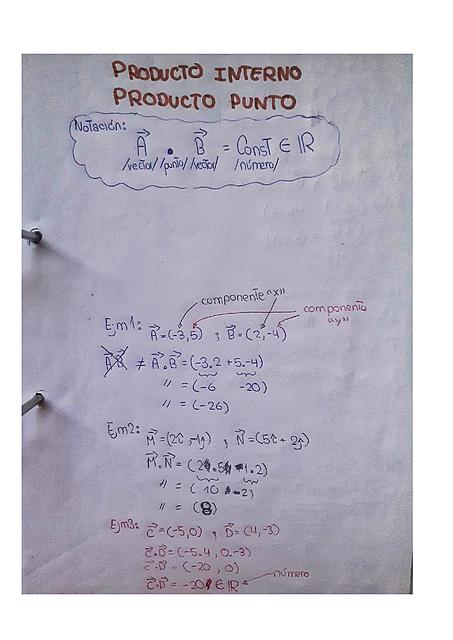 PRODUCTO INTERNO
PRODUCTO PUNTO
Notación:
A⃗ • B⃗ = Const ∈ ℝ
/vector/ /punto/ /vector/ /número/
componente "x"
componente "y"
Ejm1: A⃗=(-3,5) ; B⃗=(2,-4)
A⃗B⃗ ≠ A⃗.B⃗=(-3.2 + 5.-4)
" = (-6 -20)
" = (-26)
Ejm2: M⃗=(2î,-1ĵ) , N⃗=(5î + 2ĵ)
M⃗.N⃗ = (2.5 -1.2)
" = (10 -2)
" = (8)
Ejm3: C⃗=(-5,0) , D⃗=(4,-3)
C⃗.D⃗=(-5.4, 0.-3)
C⃗.D⃗=(-20, 0)
C⃗.D⃗= -20 ∈ ℝ número